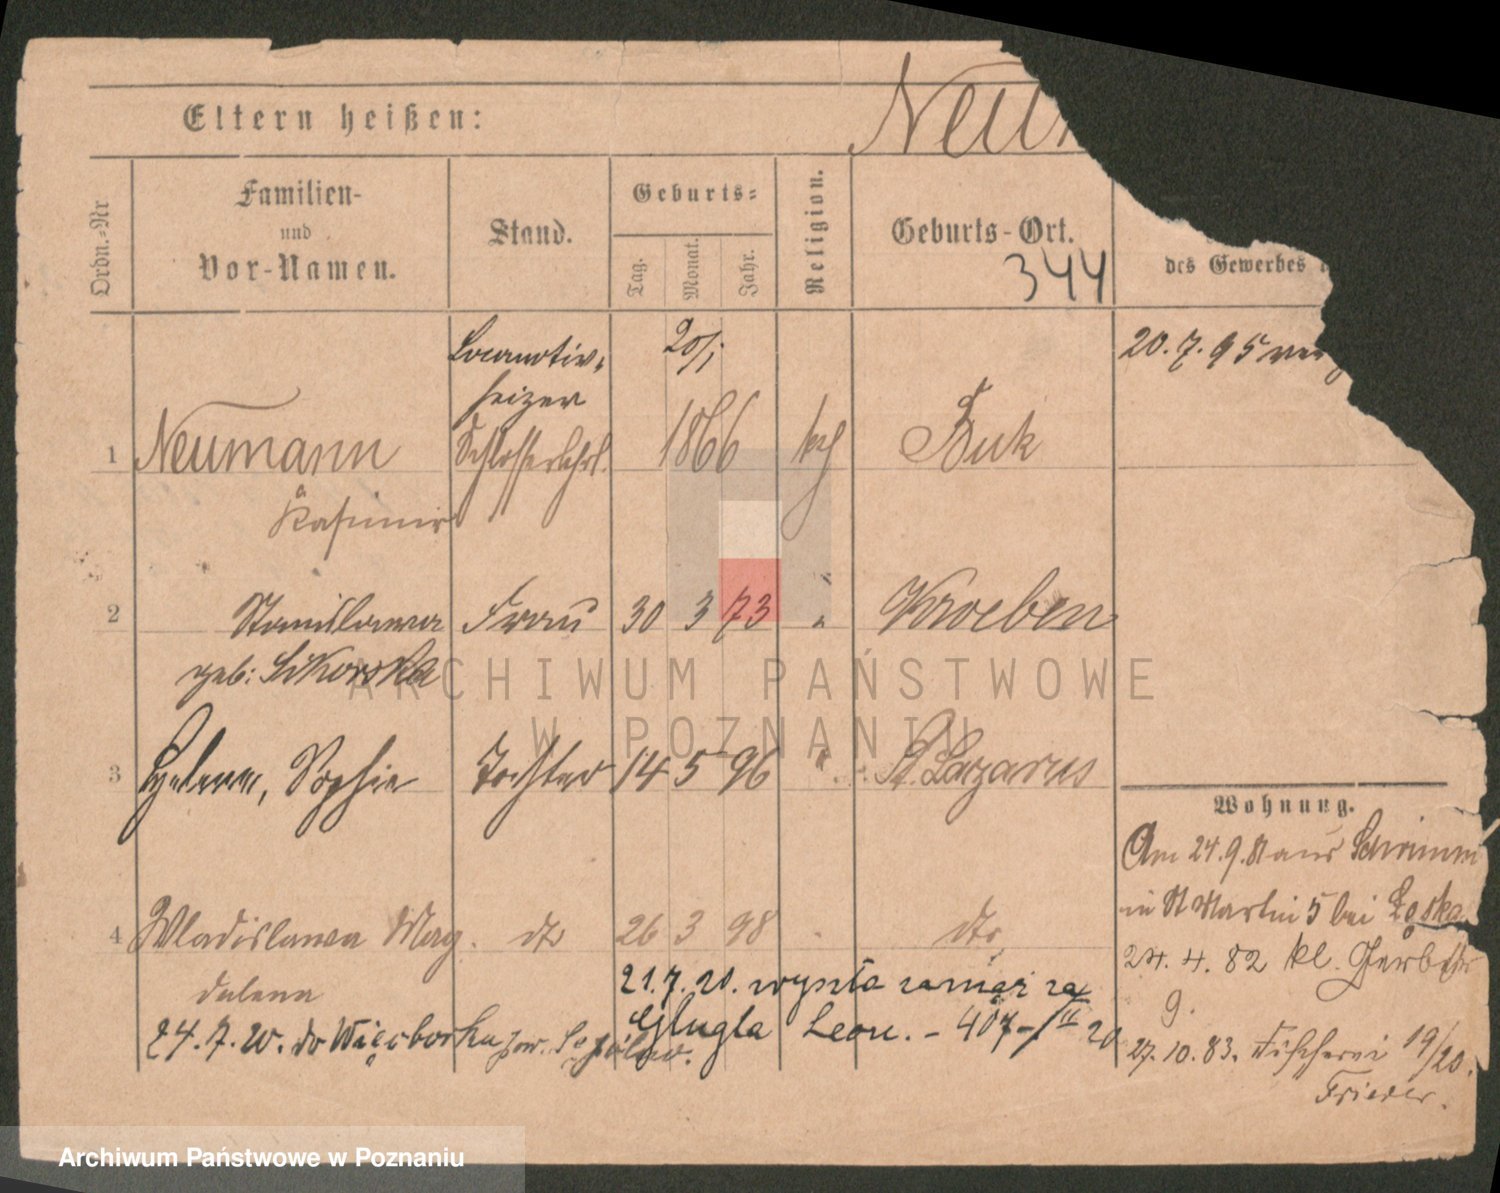 Eltern heißen:
Neu
Ordn.-Nr
Familien-
und
Vor-Namen.
Stand.
Geburts-
Tag.
Monat.
Jahr.
Religion.
Geburts-Ort.
344
des Gewerbes
Locomotiv-
heizer
20/1
20.7.95
1 Neumann Schlosserlehrl. 1866 kth Buk
Kasimir
2 Stanislawa Frau 30 3 73 " Kroeben
geb: Sikorska
3 Helene, Sophie Tochter 14 5 96 " St. Lazarus
Wohnung.
Am 24.9.81 aus Schrimm
in St Martin 5 bei
4 Wladislawa Mag- dto 26 3 98 dto
dalena
24.4.82 kl. Gerberstr
9.
21.7.20. wyszła zamąż za
Glugla Leon. - 407-/II 20
24.7.20. do Więcborka pow. Sępólno.
27.10.83. Fischerei 19/20.
Frieder.
ARCHIWUM PAŃSTWOWE
W POZNANIU
Archiwum Państwowe w Poznaniu